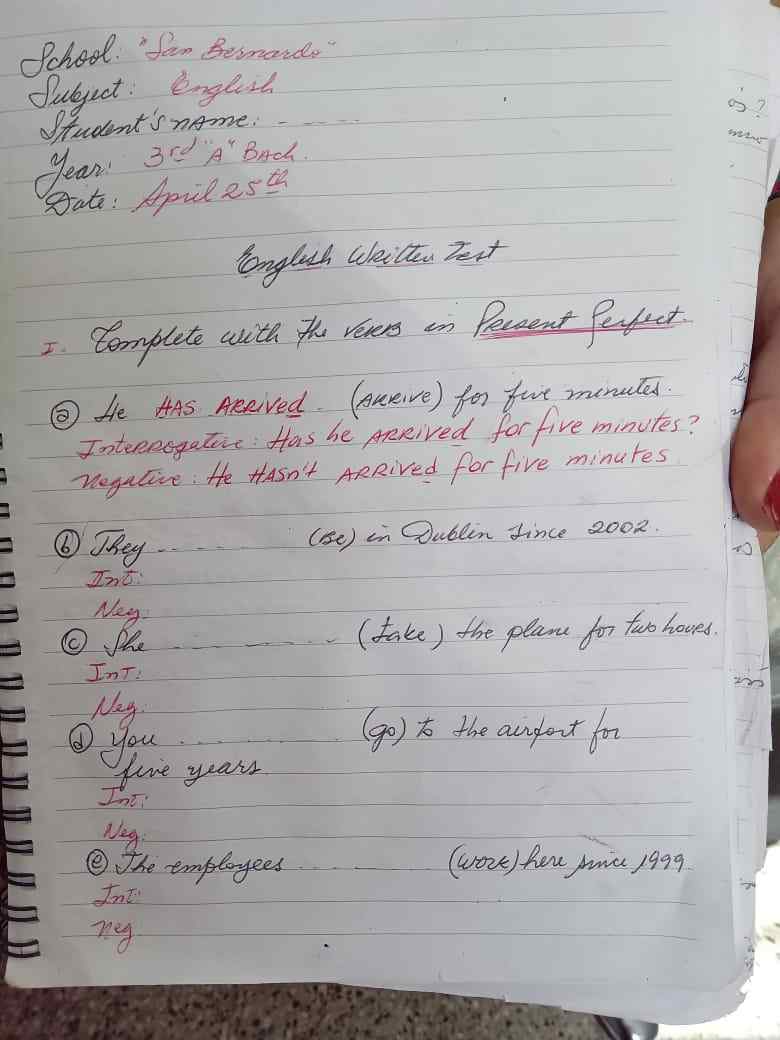 School: "San Bernardo"
Subject: English
Student's name: - - - - -
Year: 3rd "A" Bach.
Date: April 25th
English Written Test
I. Complete with the verb in Present Perfect.
a) He HAS ARRIVED. (ARRIVE) for five minutes.
Interrogative: Has he ARRIVED for five minutes?
Negative: He HASn't ARRIVED for five minutes
b) They - - - - (Be) in Dublin since 2002.
Int:
Neg:
c) She - - - - - - - (take) the plane for two hours.
Int:
Neg:
d) You - - - - - - (go) to the airport for
five years.
Int:
Neg:
e) The employees - - - - - - (work) here since 1999
Int:
Neg